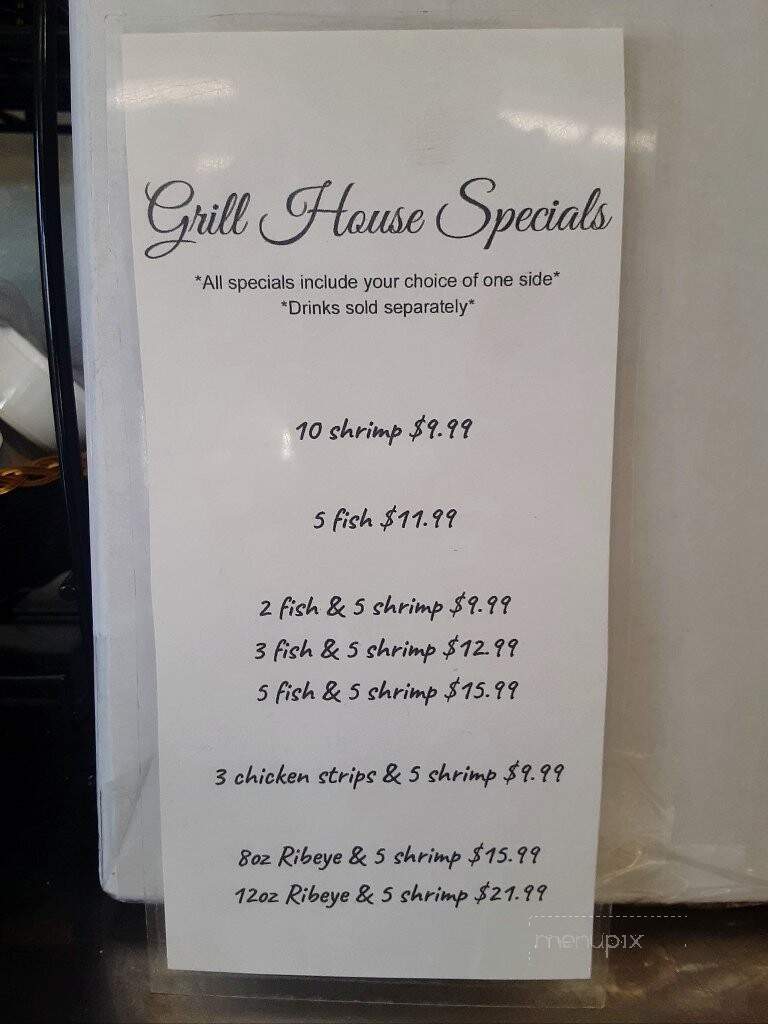 Grill House Specials
*All specials include your choice of one side*
*Drinks sold separately*
10 shrimp $9.99
5 fish $11.99
2 fish & 5 shrimp $9.99
3 fish & 5 shrimp $12.99
5 fish & 5 shrimp $15.99
3 chicken strips & 5 shrimp $9.99
8oz Ribeye & 5 shrimp $15.99
12oz Ribeye & 5 shrimp $21.99
menupix